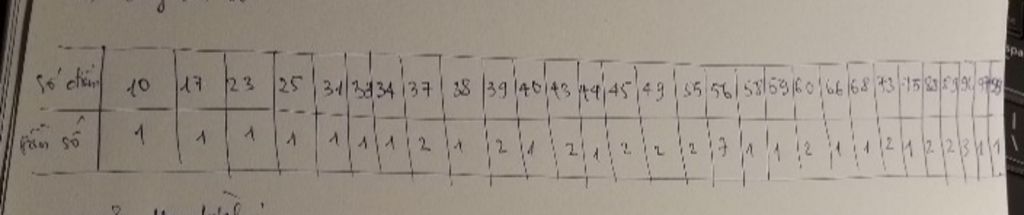 Số điểm 10 17 23 25 31 33 34 37 38 39 40 43 44 45 49 55 56 58 59 60 66 68 73 75
Tần số 1 1 1 1 1 1 1 2 1 2 1 2 1 2 2 2 7 1 1 2 1 1 2 1 2 2 3 1 1